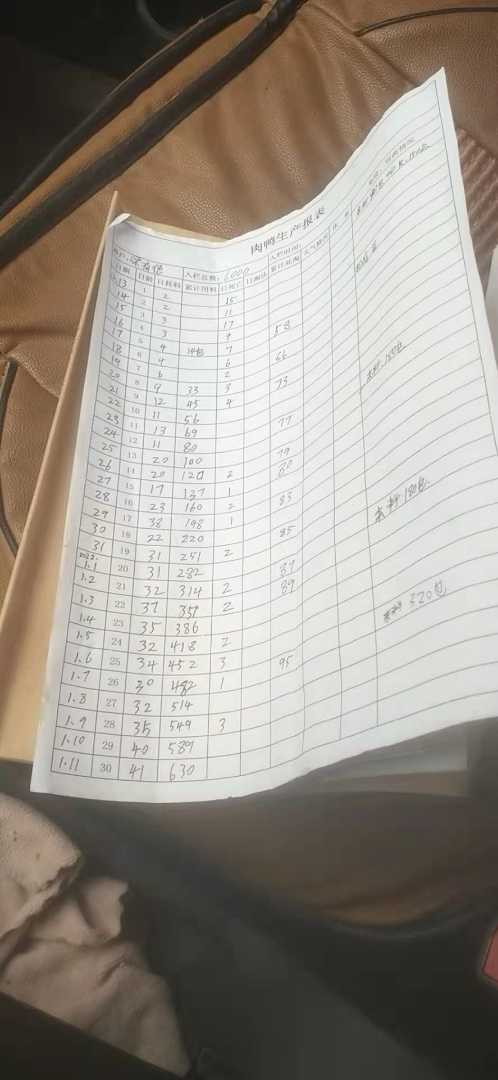 肉鸭生产报表
入栏总数: 6000 入栏时间:
日期 日龄 日耗料 累计用料 日死亡 日淘汰 累计死淘 天气情况
13 1 2 15
14 2 2 11
15 3 3 17
16 4 3 58
17 5 4 7
18 6 4 6 66
19 7 6 2
20 8 9 33 3 73
21 9 12 45 4
22 10 11 56
23 11 13 69 77
24 12 11 80
25 13 20 100 79
26 14 20 120 2 80
27 15 17 137 1
28 16 23 160 2 83
29 17 38 198 1
30 18 22 220 85
31 19 31 251 2
2022.1.1 20 31 282 87
1.2 21 32 314 2 89
1.3 22 37 351 2
1.4 23 35 386
1.5 24 32 418 2
1.6 25 34 452 3 95
1.7 26 30 482 1
1.8 27 32 514
1.9 28 35 549 3
1.10 29 40 589
1.11 30 41 630
180包
320包